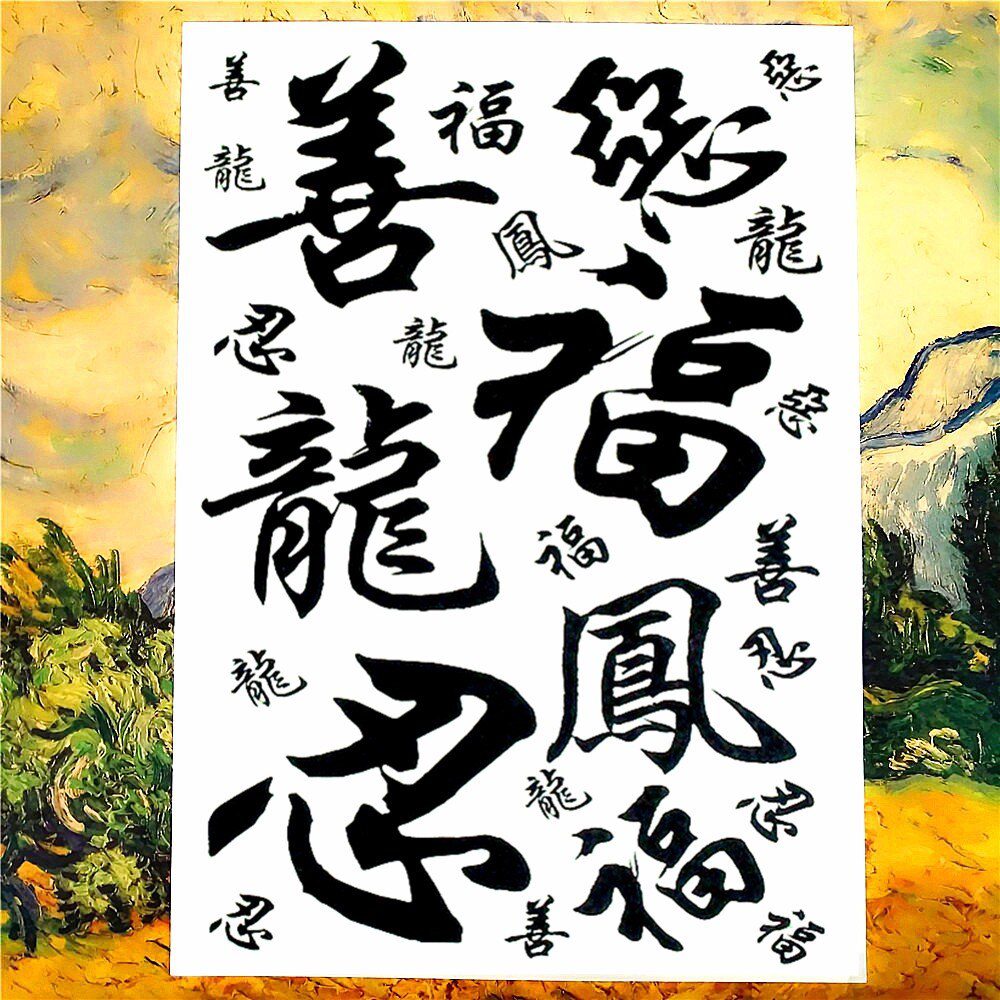 善
善
福
龍
鳳
龍
忍
龍
福
龍
福
善
鳳
忍
龍
忍
龍
忍
福
忍
善
福